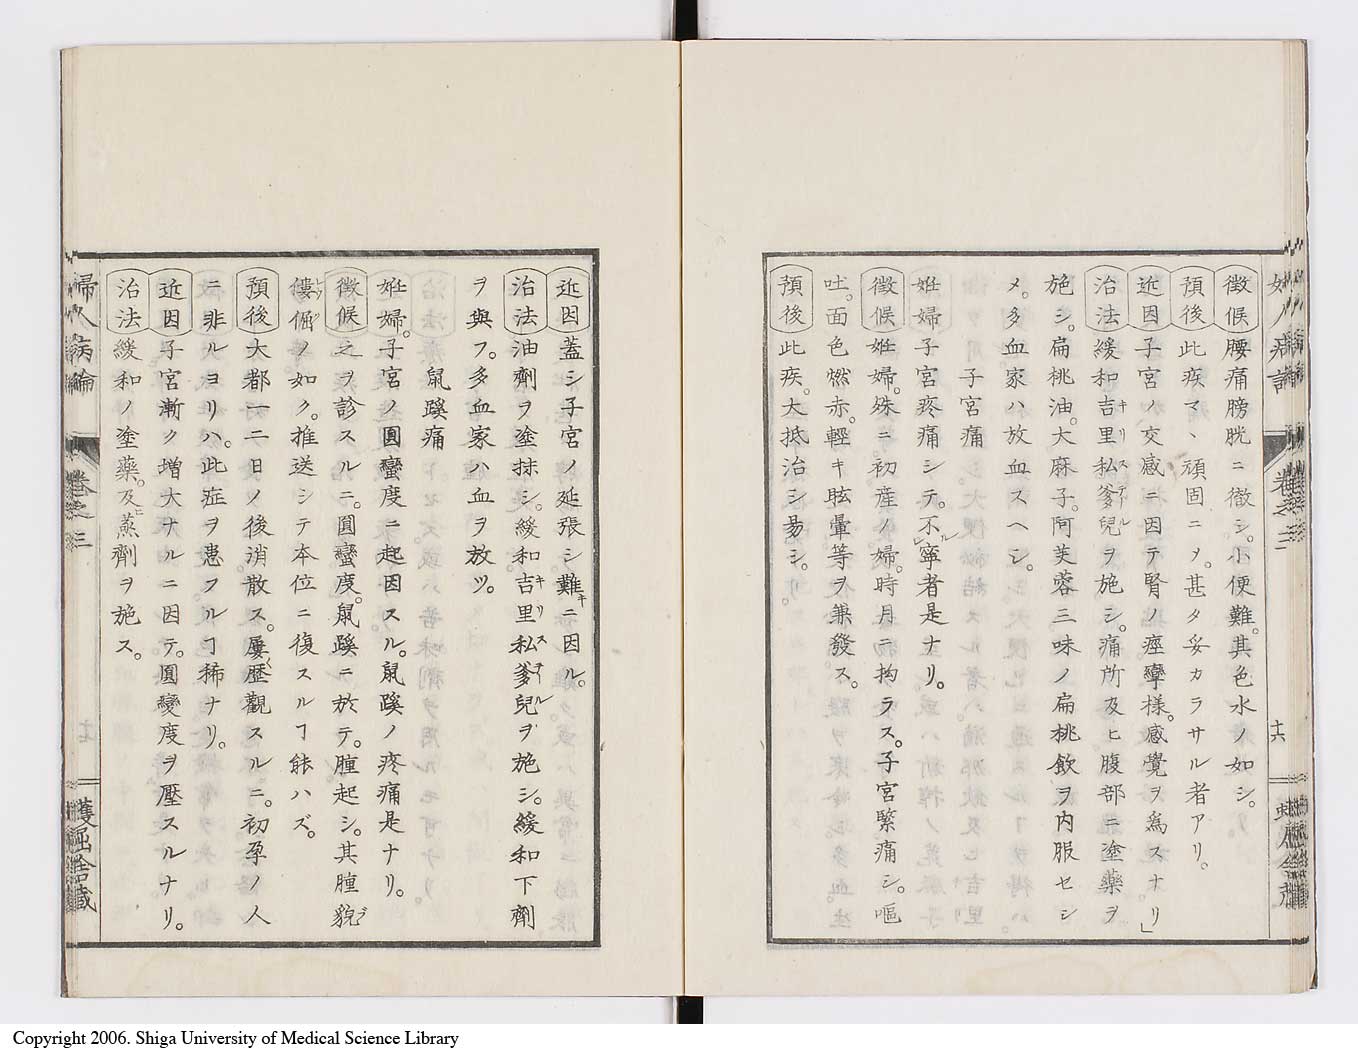 徴候腰痛膀胱ニ徹シ。小便難。其色水ノ如シ。
預後此疾マヽ頑固ニノ。甚タ妥カラサル者アリ。
近因子宮ノ交感ニ因テ腎ノ痙攣様。感覺ヲ為スナリ」
治法緩和吉里私爹兒ヲ施シ。痛所及ヒ腹部ニ塗藥ヲ
キリステール
施シ。扁桃油。大麻子。阿芙蓉三味ノ扁桃飲ヲ内服セシ
メ。多血家ハ放血スヘシ。
子宮痛
妊婦子宮疼痛シテ。不寧者是ナリ。
ル
徴候妊婦。殊ニ初産ノ婦。時月ニ拘ラス。子宮緊痛シ。嘔
吐。面色燃赤。輕キ眩暈等ヲ兼發ス。
預後此疾。大抵治シ易シ。
卷之三
十六
近因蓋シ子宮ノ延張シ難ニ因ル。
キ
治法油劑ヲ塗抹シ。緩和吉里私爹兒ヲ施シ。緩和下劑
キリステール
ヲ與フ。多血家ハ血ヲ放ツ。
鼠蹊痛
妊婦。子宮ノ圓蠻度ニ起因スル。鼠蹊ノ疼痛是ナリ。
徴候之ヲ診スルニ。圓蠻度。鼠蹊ニ於テ。腫起シ。其腫貌
僂倔ノ如ク。推送シテ本位ニ復スルヿ能ハズ。
預後大都一二日ノ後消散ス。屢歴觀スルニ。初孕ノ人
ニ非ルヨリハ。此症ヲ患フルヿ稀ナリ。
近因子宮漸ク増大ナルニ因テ。圓蠻度ヲ壓スルナリ。
治法緩和ノ塗藥。及蒸劑ヲ施ス。
ニ
婦人病論
卷之三